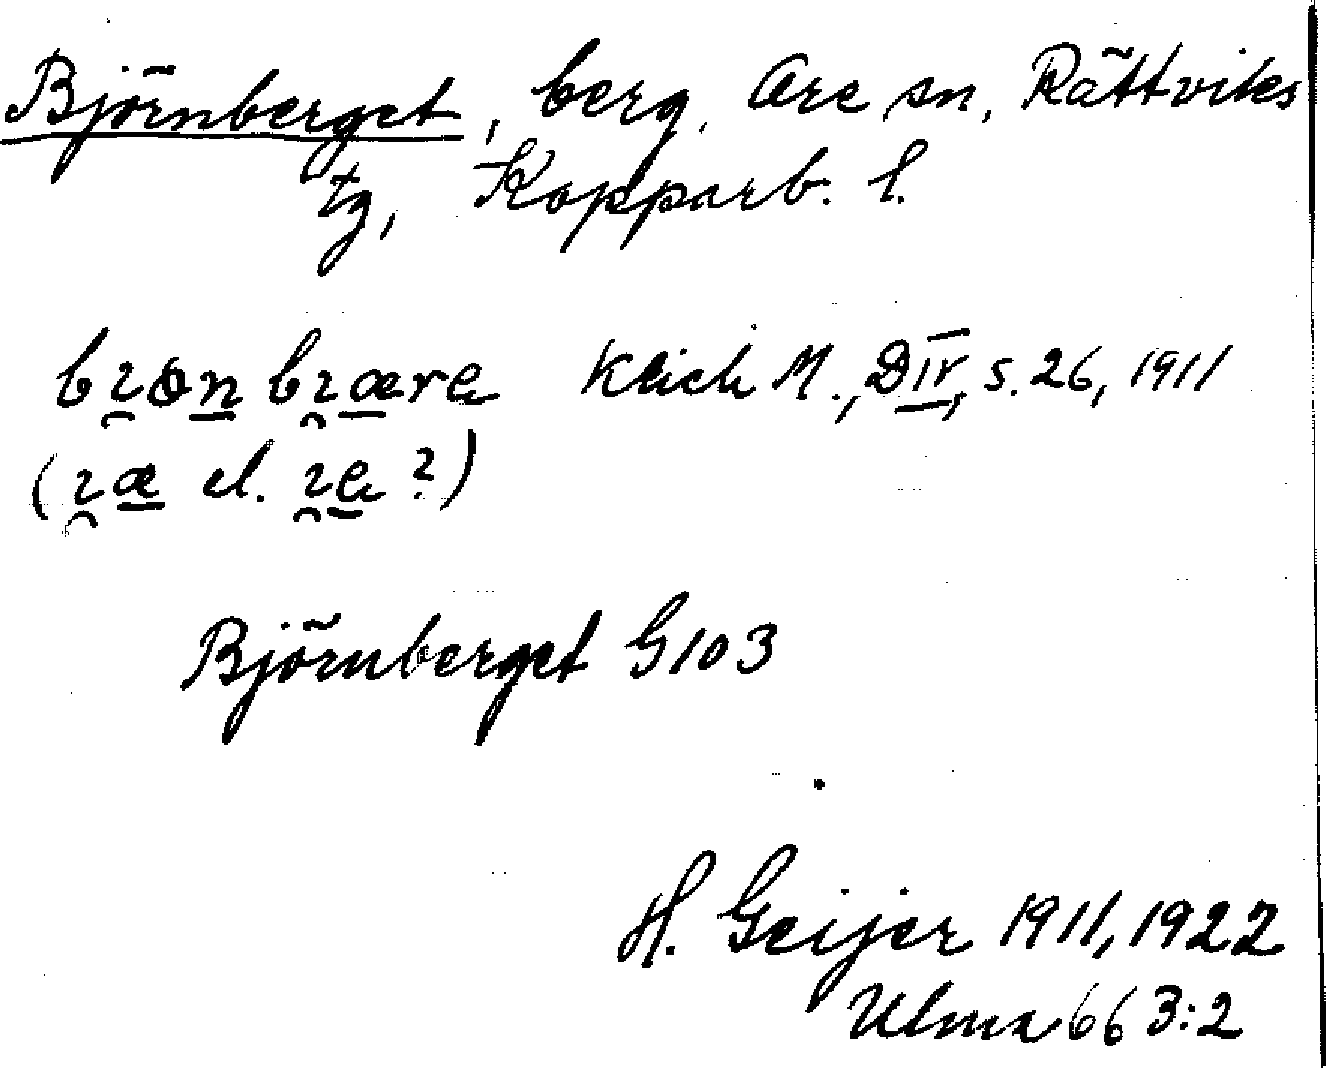 Björnberget, berg, Ore sn, Rättviks
tg, Kopparb. l.
M., DIV, s. 26, 1911
el. ?)
Björnberget G103
H. Geijer 1911, 1922
Ulma 663:2